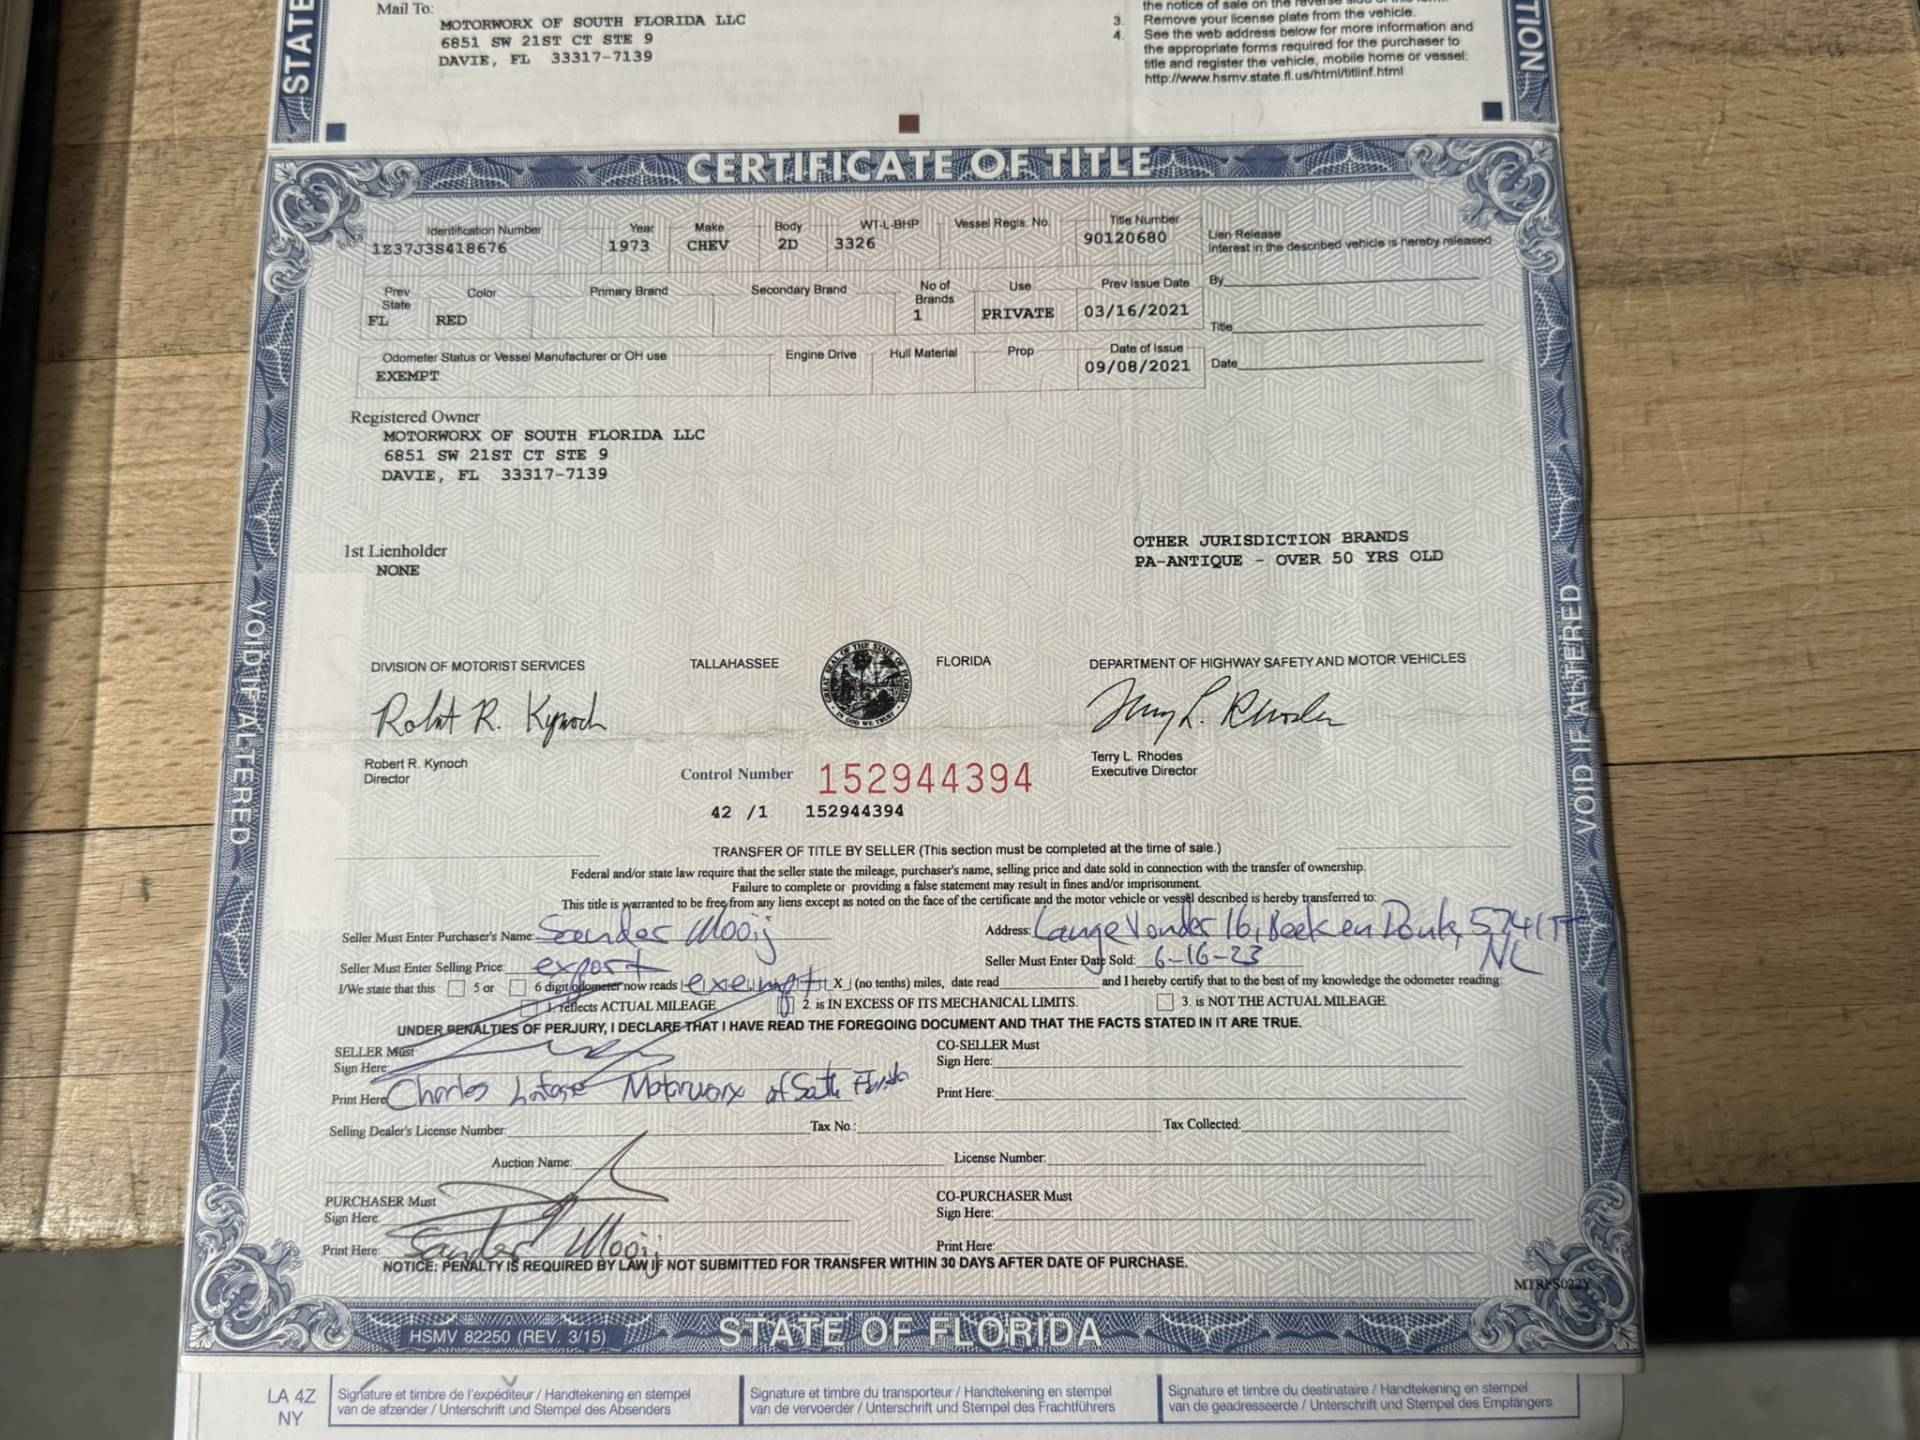 STATE
Mail To:
MOTORWORX OF SOUTH FLORIDA LLC
6851 SW 21ST CT STE 9
DAVIE, FL 33317-7139
the notice of sale on the reverse side of this form.
3. Remove your license plate from the vehicle.
4. See the web address below for more information and
the appropriate forms required for the purchaser to
title and register the vehicle, mobile home or vessel:
http://www.hsmv.state.fl.us/html/titlinf.html
CERTIFICATE OF TITLE
Identification Number Year Make Body WT-L-BHP Vessel Regis. No. Title Number
1Z37J3S418676 1973 CHEV 2D 3326 90120680
Lien Release
Interest in the described vehicle is hereby released
By
Title
Date
Prev State Color Primary Brand Secondary Brand No of Brands Use Prev Issue Date
FL RED 1 PRIVATE 03/16/2021
Odometer Status or Vessel Manufacturer or OH use Engine Drive Hull Material Prop Date of Issue
EXEMPT 09/08/2021
Registered Owner
MOTORWORX OF SOUTH FLORIDA LLC
6851 SW 21ST CT STE 9
DAVIE, FL 33317-7139
1st Lienholder
NONE
OTHER JURISDICTION BRANDS
PA-ANTIQUE - OVER 50 YRS OLD
VOID IF ALTERED
VOID IF ALTERED
DIVISION OF MOTORIST SERVICES TALLAHASSEE FLORIDA DEPARTMENT OF HIGHWAY SAFETY AND MOTOR VEHICLES
GREAT SEAL OF THE STATE OF FLORIDA
IN GOD WE TRUST
Robert R. Kynoch
Director
Terry L. Rhodes
Executive Director
Control Number 152944394
42 /1 152944394
TRANSFER OF TITLE BY SELLER (This section must be completed at the time of sale.)
Federal and/or state law require that the seller state the mileage, purchaser's name, selling price and date sold in connection with the transfer of ownership.
Failure to complete or providing a false statement may result in fines and/or imprisonment.
This title is warranted to be free from any liens except as noted on the face of the certificate and the motor vehicle or vessel described is hereby transferred to:
Seller Must Enter Purchaser's Name: Sander Mooij Address: Lange Vonder 16, Beek en Donk, 5741 NL
Seller Must Enter Selling Price: export Seller Must Enter Date Sold: 6-16-23
I/We state that this 5 or 6 digit odometer now reads exempt X (no tenths) miles, date read and I hereby certify that to the best of my knowledge the odometer reading:
1. reflects ACTUAL MILEAGE. 2. is IN EXCESS OF ITS MECHANICAL LIMITS. 3. is NOT THE ACTUAL MILEAGE.
UNDER PENALTIES OF PERJURY, I DECLARE THAT I HAVE READ THE FOREGOING DOCUMENT AND THAT THE FACTS STATED IN IT ARE TRUE.
SELLER Must
Sign Here:
CO-SELLER Must
Sign Here:
Print Here: Charles Motorworx of South Florida
Print Here:
Selling Dealer's License Number: Tax No.: Tax Collected:
Auction Name: License Number:
PURCHASER Must
Sign Here:
CO-PURCHASER Must
Sign Here:
Print Here: Sander Mooij
Print Here:
NOTICE: PENALTY IS REQUIRED BY LAW IF NOT SUBMITTED FOR TRANSFER WITHIN 30 DAYS AFTER DATE OF PURCHASE.
HSMV 82250 (REV. 3/15)
STATE OF FLORIDA
LA 4Z
NY
Signature et timbre de l'expéditeur / Handtekening en stempel
van de afzender / Unterschrift und Stempel des Absenders
Signature et timbre du transporteur / Handtekening en stempel
van de vervoerder / Unterschrift und Stempel des Frachtführers
Signature et timbre du destinataire / Handtekening en stempel
van de geadresseerde / Unterschrift und Stempel des Empfängers